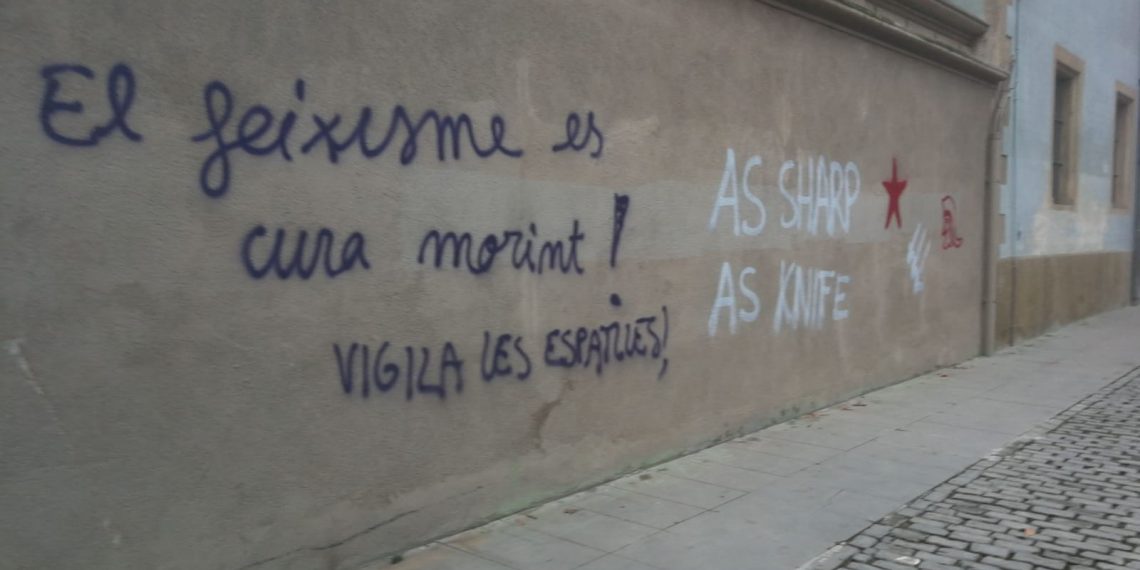 El feixisme es
cura morint!
VIGILA LES ESPATLLES!
AS SHARP
AS KNIFE